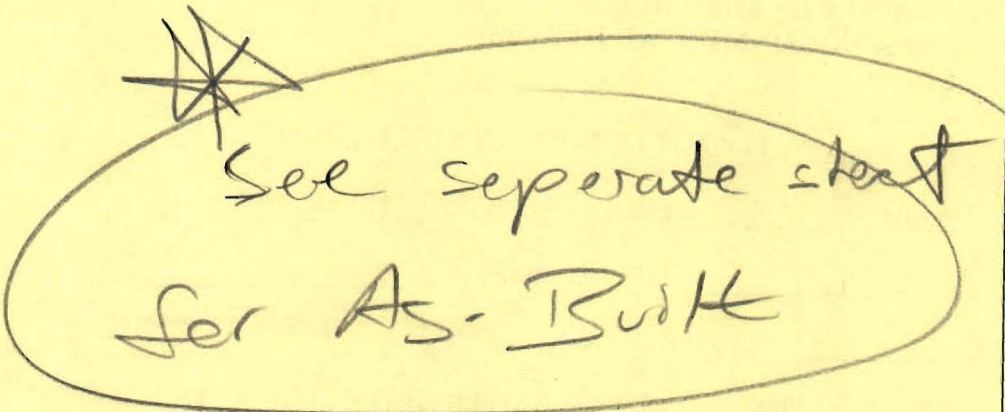 See seperate sheet
for As-Built